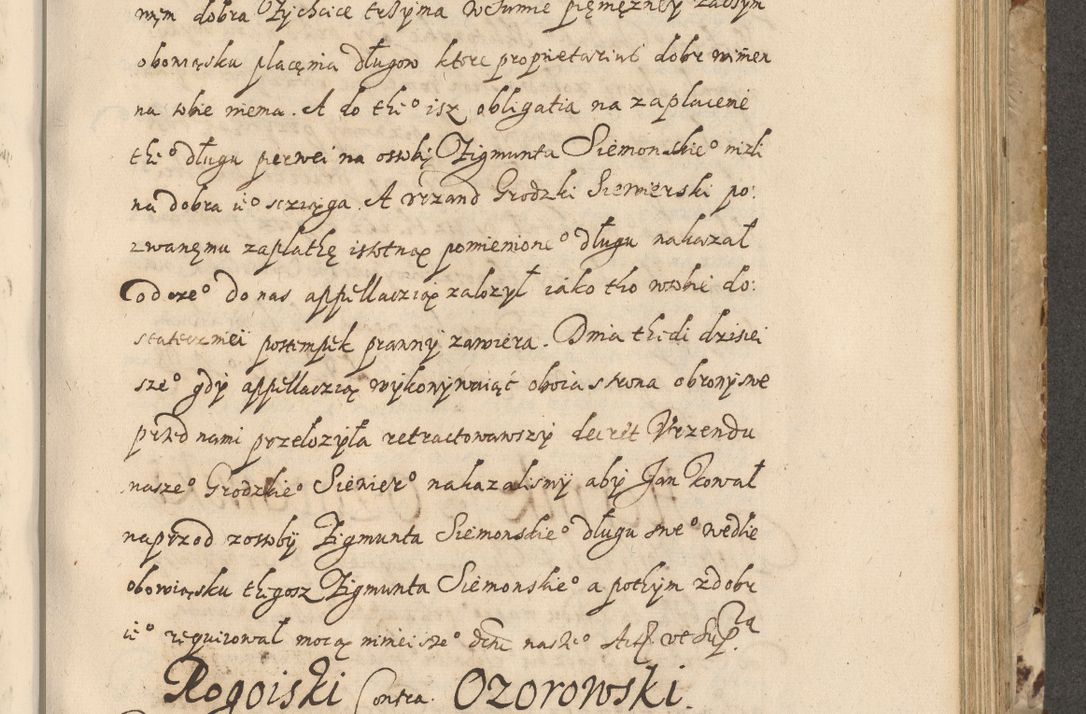 mym dobra Zychcice trzyma wsumie pięniężney zaczym
obowiąsku płacęnia długow ktore proprietariuś dobr winien
na sobie niema. A do theº isz obligatia na zapłacenie
theº długu perwei na ossobę Zigmunta Siemonskieº nizli
na dobra ieº sciąga. A vrzand Grodzki Siewierski po:
zwanęmu zapłathę istotnąx pomienioneº długu nakazał
Od czeº do nas appellaczią założył iako tho wsobie do:
stateczniei postempek prawny zawiera. Dnia thedi dzisiei
szeº gdy appellaczią wykonywaiąć oboia strona obrony swe
przed nami przełozyła retractowawszy decret Vrzendu
naszeº Grodzkieº Siewierº nakazalismy aby Jan Kowal
naprzod zossoby Zigmunta Siemonskieº długu sweº wedle
obowiąsku thegosz Zigmunta Siemonskieº a pothym zdobr
ieº requirował mocą ninieiszeº dcru naszeº Act. vt supra
Rogoiski Contra Ozorowski.